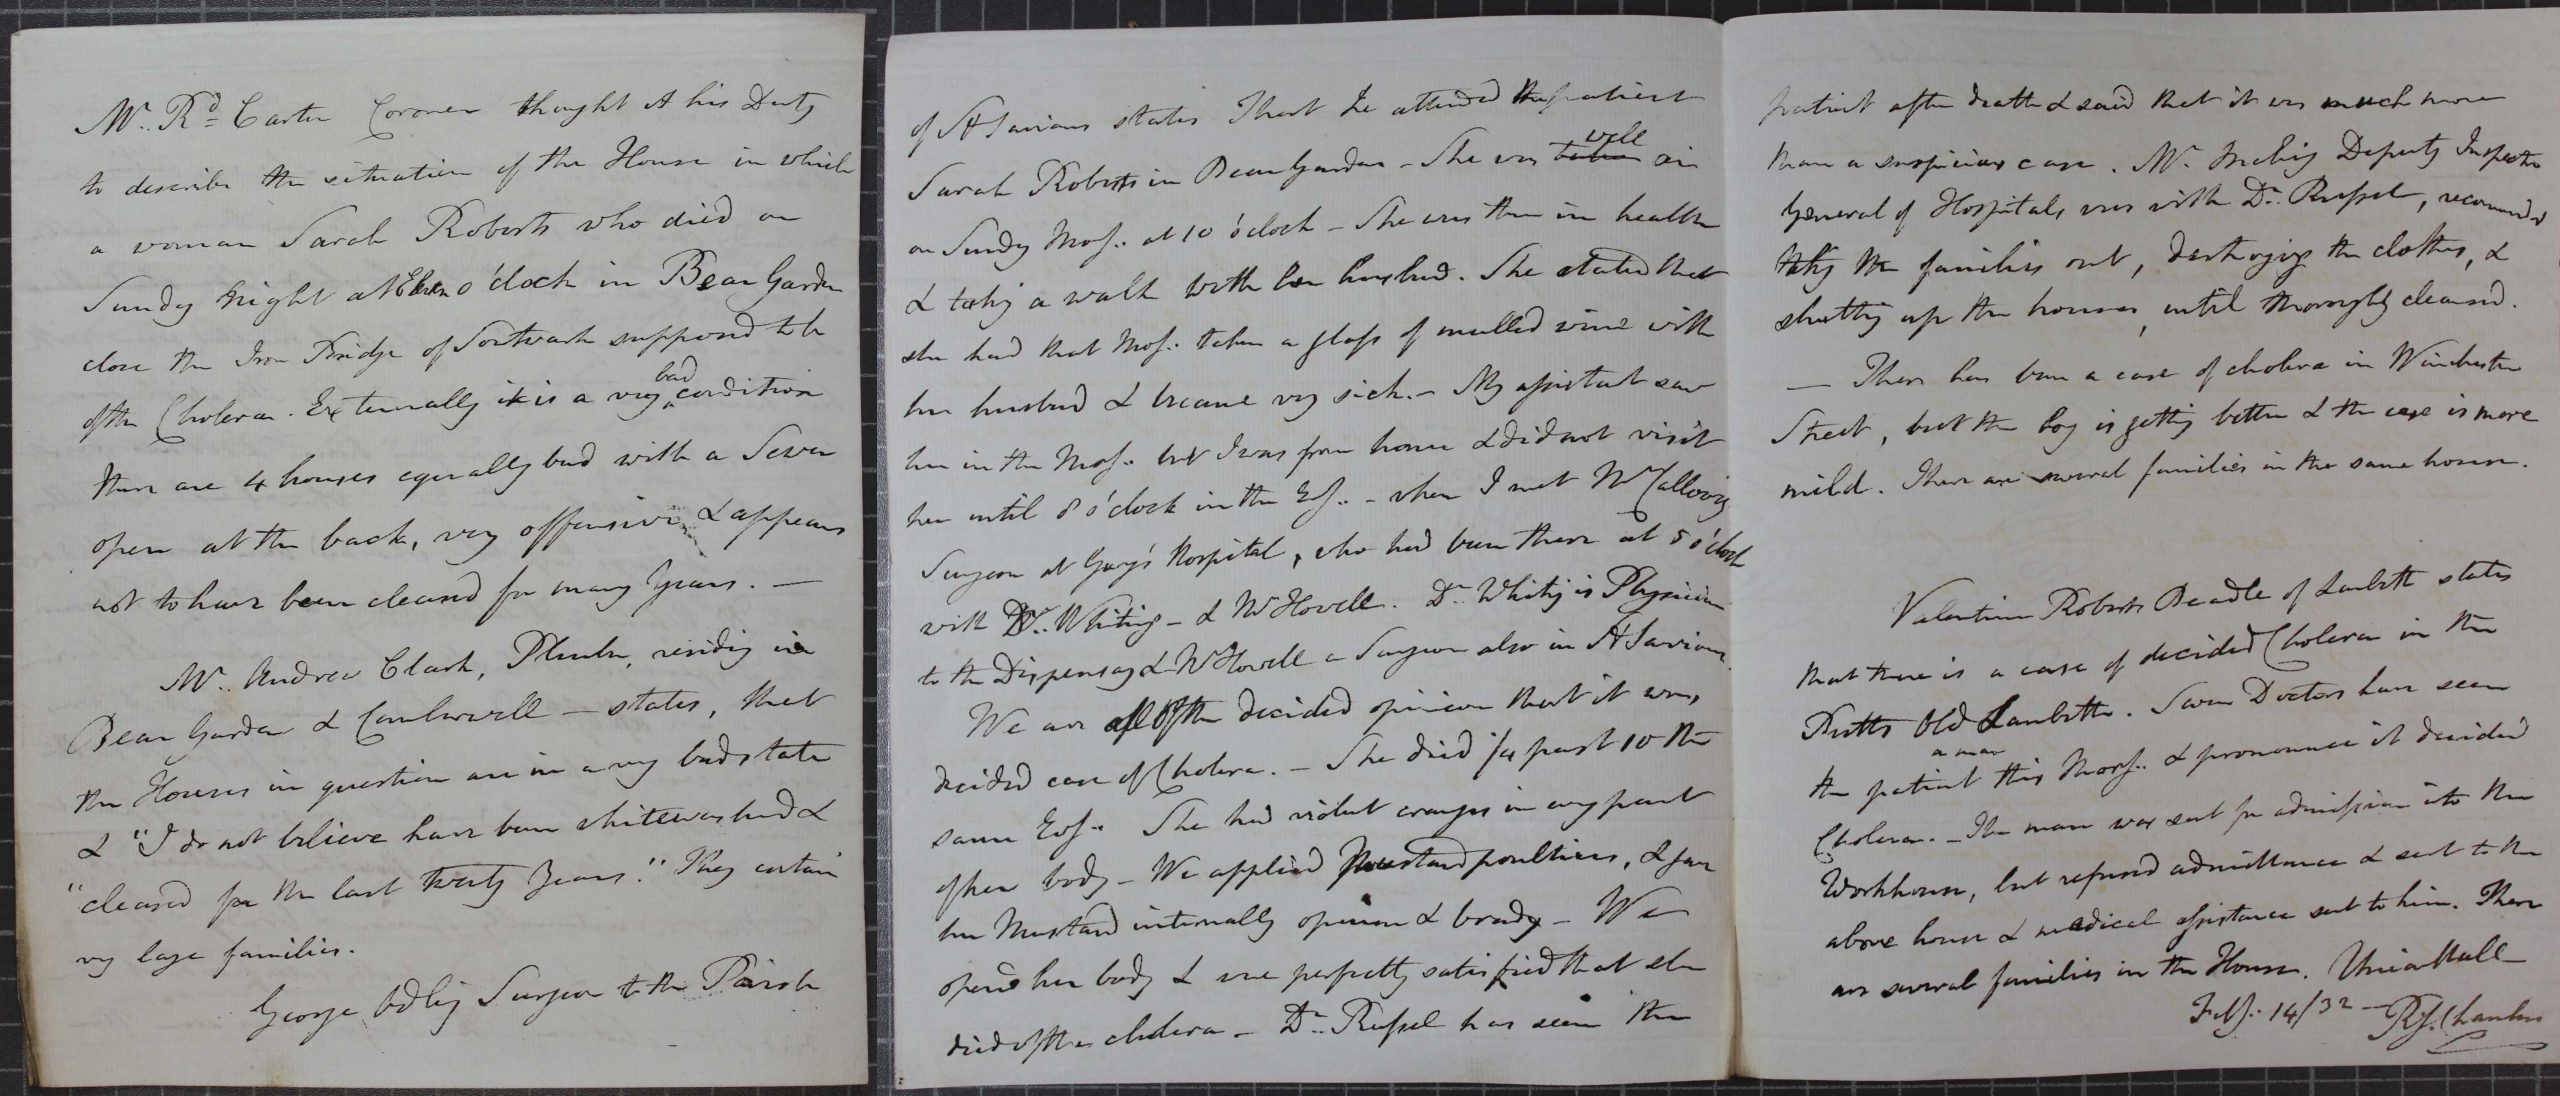 Mr. Rd. Carter Coroner thought it his Duty
to describe the situation of the House in which
a woman Sarah Roberts who died on
Sundy Night at Eleven o'clock in Bear Garden
close the Iron Bridge of Southwark supposed to be
of the Cholera. Externally it is a very bad condition
there are 4 houses equally bad with a Sewer
open at the back, very offensive & appears
not to have been cleansed for many Years. —
Mr. Andrew Clark, Plumber, residing in
Bear Garden & Camberwell — states, that
the Houses in question are in a very bad state
& "I do not believe have been whitewashed &
"cleansed for the last twenty Years." They contain
very large families.
George Odling Surgeon to the Parish
of St Saviours states That he attended the patient
Sarah Roberts in Bear Garden - She was well
on Sundy Mog. at 10 o'clock - She was then in health
& takig a walk with her husband. She stated that
she had that Mog. taken a glass of mulled wine with
her husband & became very sick. - My assistant saw
her in the Mog. but I was from home & did not visit
her until 8 o'clock in the Evg. - when I met Mr Callovig
Surgeon at Guy's Hospital, who had been there at 5 o'clock
with Dr. Whiting - & Mr Howell. Dr. Whitig is Physician
to the Dispensary & Mr Howell a Surgeon also in St Saviours.
We are all of the decided opinion that it was
decided case of Cholera. - She died 1/4 past 10 the
same Evg. She had violent cramps in every part
of her body - We applied Mustard poultices, & gave
her Mustard internally opium & brandy - We
opend her body & were perfectly satisfied that she
died of the cholera - Dr. Russel has seen the
patient after death & said that it was much more
than a suspicious case. Mr. Deputy Inspector
General of Hospitals was with Dr. Russel, recommended
takig the families out, destroying the clothes, &
shuttig up the houses, until thoroughly cleansed.
— There has been a case of cholera in Winchester
Street, but the boy is gettig better & the case is more
mild. There are several families in the same house.
Valentine Roberts Beadle of Lambeth states
that there is a case of decided Cholera in the
Butts Old Lambeth. Seven Doctors have seen
the patient a man this Morg. & pronounce it decided
Cholera. - The man was sent for admission into the
Workhouse, but refused admittance & sent to the
above house & medical assistance sent to him. There
are several families in the House. Union Hall
Feby. 14/32 — R J Chambers